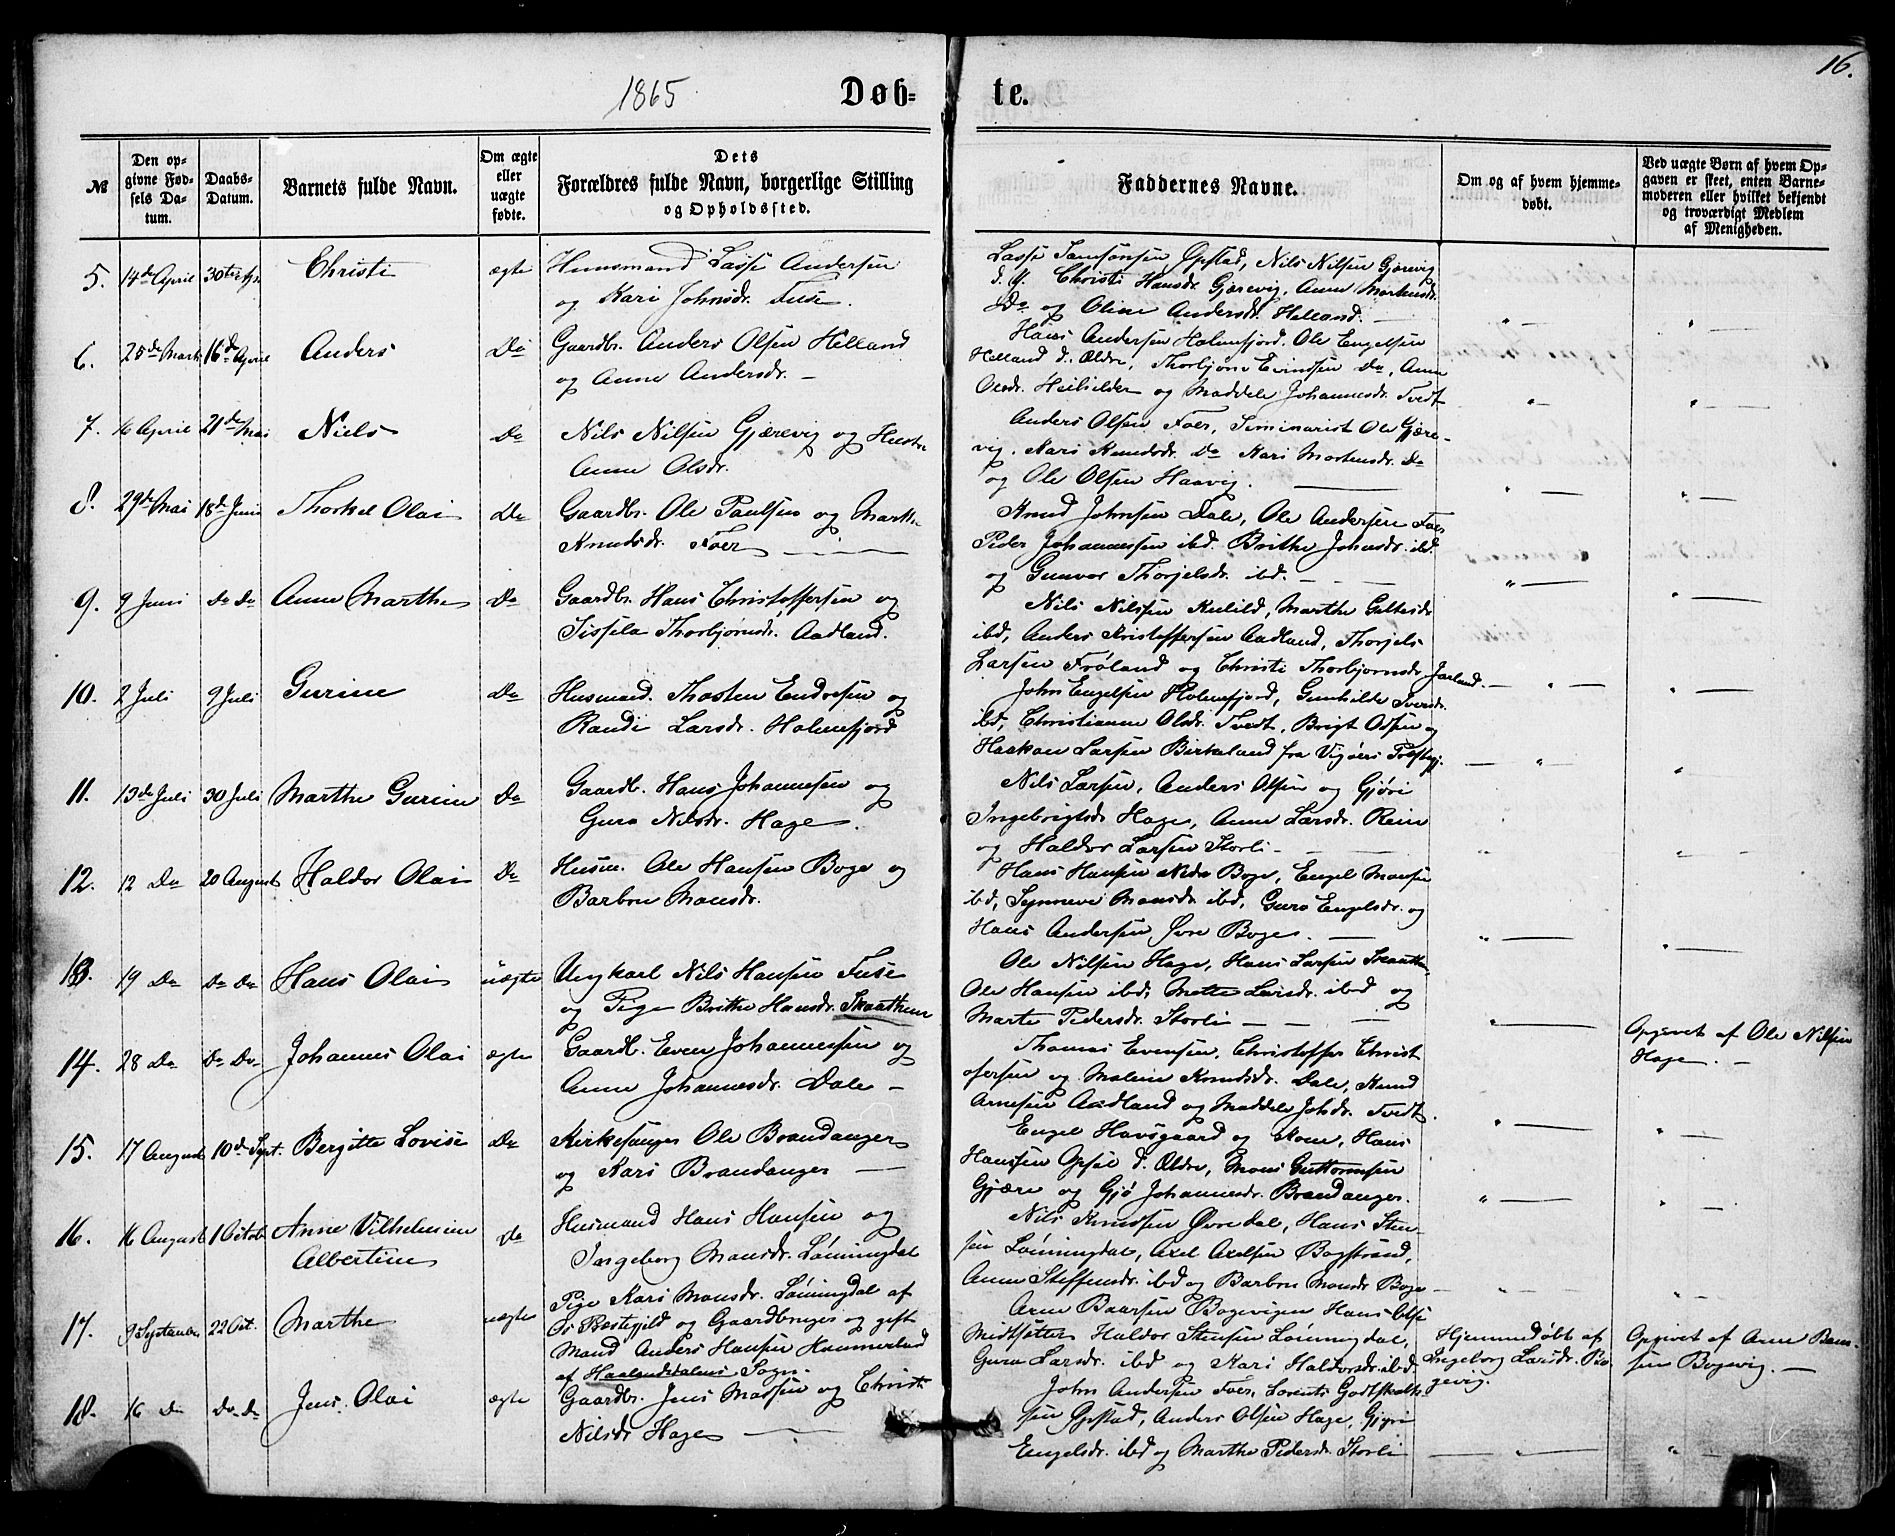 1865 Døb- te. 16.
№
Den opgivne Fødsels Datum.
Daabs-Datum.
Barnets fulde Navn.
Om ægte eller uægte fødte.
Dets Forældres fulde Navn, borgerlige Stilling og Opholdssted.
Faddernes Navne.
Om og af hvem hjemmedøbt.
Ved uægte Børn af hvem Opgaven er skeet, enten Barnemoderen eller hvilket bekjendt og troværdigt Medlem af Menigheden.
5. 14de April 30te Ap. Christi ægte Huusmand Lasse Andersen
og Kari Johnsdr. Fuse.
Lasse Samsonsen Opstad, Nils Nilsen Gjærevig
d. y. Christi Hansdr. Gjærevig, Anna Mortensdr.
Do og Oline Andersdr. Helland.
6. 25de Marts 16de April Anders Do Gaardbr. Anders Olsen Helland
og Anna Andersdr. —
Hans Andersen Holmefjord, Ole Engelsen
Helland d. Ældre, Thorbjørn Evindsen Do, Anna
Olsdr. Heihilder og Maddele Johannesdr. Tvedt
7. 16 April 21de Mai Niels Do Nils Nilsen Gjærevig og Hustru
Anna Olsdr.
Anders Olsen Foer, Seminarist Ole Gjære-
vig. Kari Knudsdr. Do Kari Mortensdr. Do
og Ole Olsen Haavig.
8. 29de Mai 18de Juni Thorkel Olai Do Gaardbr. Ole Paulsen og Marthe
Knudsdr. Foer
Knud Johnsen Dale, Ole Andersen Foer
Peder Johannessen ibd. Brithe Johnsdr. ibd.
og Gunvor Thorjelsdr. ibd.
9. 9 Juni Do Do Anna Marthe Do Gaardbr. Hans Christoffersen og
Sissela Thorbjørnsdr. Aadland.
Nils Nilssen Kulild, Marthe Galtesdr.
ibd, Anders Kristoffersen Aadland, Thorjels
Larsen Frøland og Christi Thorbjørnsdr. Jarland.
10. 2 Juli 9 Juli Gurine Do Husmand. Thosten Endresen og
Randi Larsdr. Holmefjord
John Engelsen Holmefjord, Gunhilde Iversdr.
ibd, Christianne Olsdr. Tvedt, Brigt Olsen og
Haakon Larsen Birkeland fra Vigøers Præstegj.
11. 13de Juli 30 Juli Marthe Gurine Do Gaardb. Hans Johannesen og
Guro Nilsdr. Hage.
Nils Larsen, Anders Olsen og Gjøri
Ingebrigtsdr. Hage, Anna Larsdr. Rein
og Haldor Larsen Storli
12. 12 Do 20 August Haldor Olai Do Husm. Ole Hansen Boge og
Barbro Monsdr.
Hans Hansen Nedre Boge, Engel Monsen
ibd, Synneve Monsdr. ibd, Guro Engelsdr. og
Hans Andersen Øvre Boge.
13. 19 Do Do Do Hans Olai uægte Ungkarl Nils Hansen Fuse
og Pige Brithe Hansdr. Skaathun
Ole Nilsen Hage, Hans Larsen Skaathun
Ole Hansen ibd, Mette Larsdr. ibd og
Marte Pedersdr. Storli
Opgivet af Ole Nilsen
Hage.
14. 28 Do Do Do Johannes Olai ægte Gaardb. Even Johannessen og
Anna Johannesdr. Dale —
Thomas Evensen, Christoffer Christ
ofersen og Malene Knudsdr. Dale, Knud
Arnesen Aadland og Maddele Johsdr. Tvedt.
15. 17 August 10de Sept. Bergitte Lovise Do Kirkesanger Ole Brandanger
og Kari Brandanger —
Engel Havsgaard og Kone, Hans
Hanssen Opsal d. Ældre, Mons Guttormsen
Gjære og Gjø Johannesdr. Brandanger.
16. 16 August 1 Octob Anne Vilhelmine
Albertine Do Husmand Hans Hansen og
Ingeborg Monsdr. Lønningdal
Nils Knudsen Øvredal, Hans Sten-
sen Lønningdal, Axel Axelsen Bogstrand,
Anna Steffensdr. ibd og Barbro Monsdr. Boge
17. 9 September 22 Oct. Marthe uægte Pige Kari Monsdr. Lønningdal af
Os Præstegjeld og Gaardbruger og gift
Mand Anders Hansen Hammerland
af Haalandsdalens Sogn.
Arne Baarsen Bogevigen Hans Olse
Midtsæter Haldor Stensen Lønningdal,
Guro Larsdr. ibd og Kari Haldorsdr. ibd.
Hjemmedøbt af
Ingeborg Larsdr. Bo
gevig.
Opgivet af Arne Baar-
sen Bogevig. —
18. 16 Do Do Do Jens Olai ægte Gaardbr. Jens Madsen og Christi
Nilsdr. Hage
John Andersen Foer, Lorents Godtskalk-
sen Opstad, Anders Olsen Hage, Gjøri
Engelsdr. ibd og Marthe Pedersdr. Storli